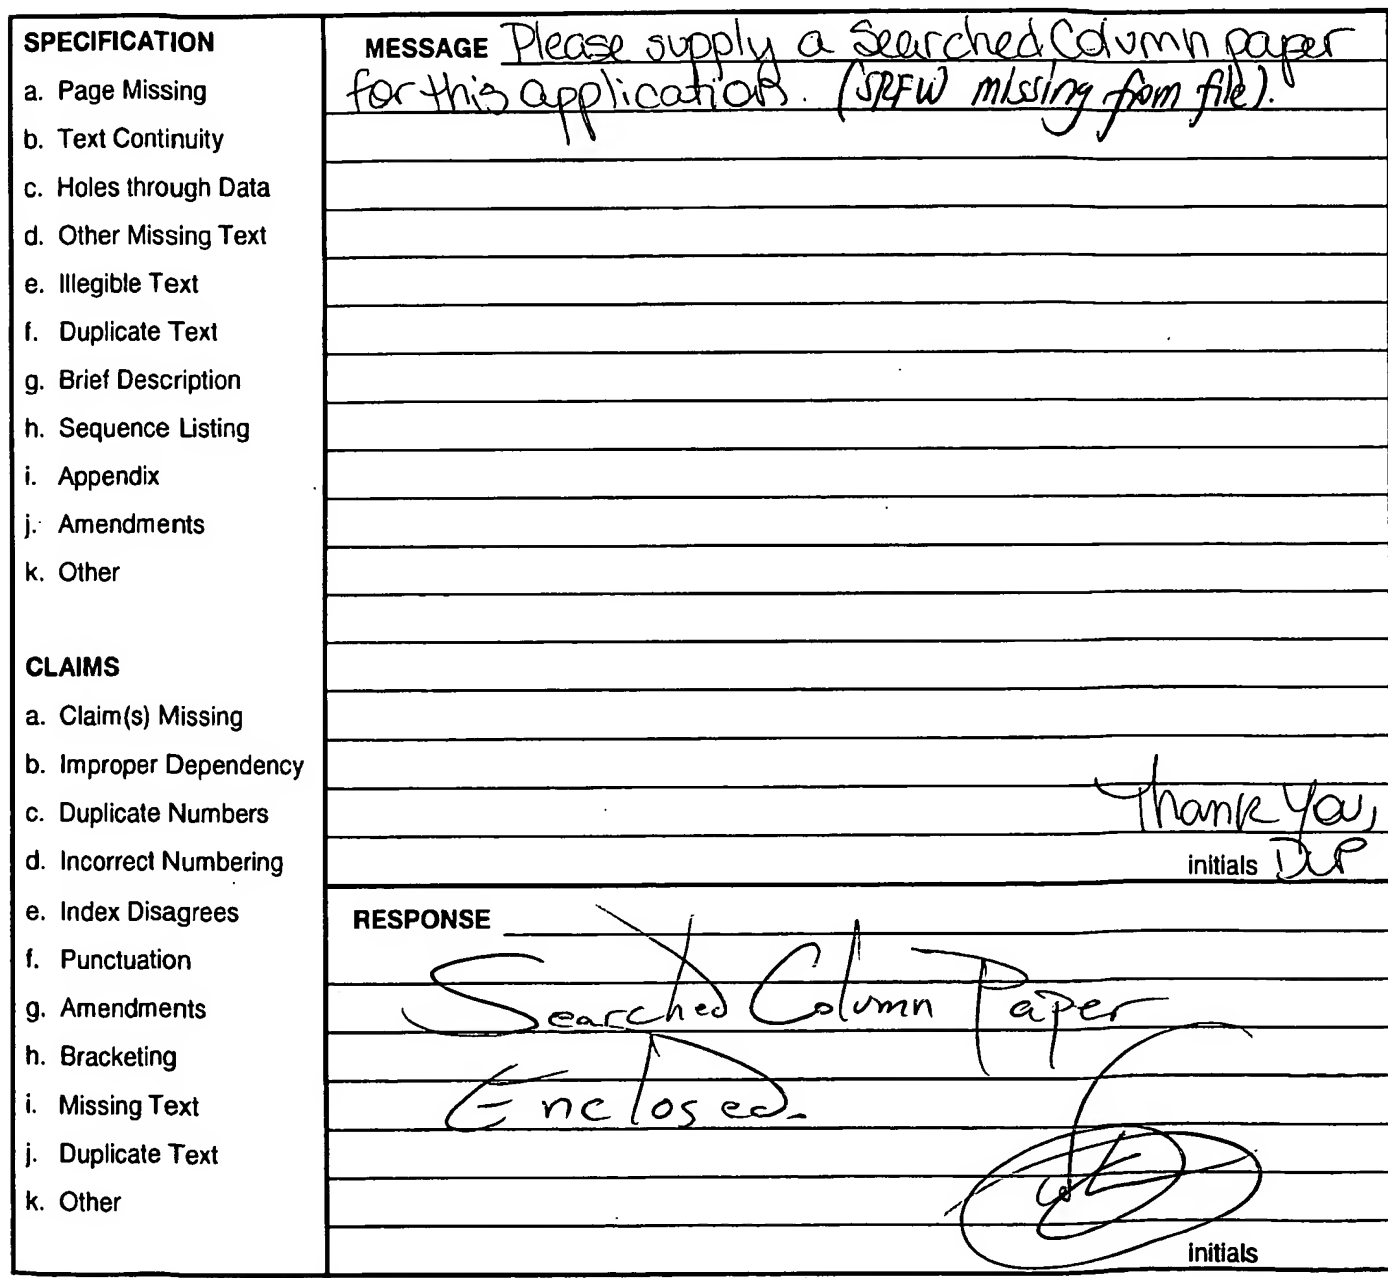 SPECIFICATION
a. Page Missing
b. Text Continuity
c. Holes through Data
d. Other Missing Text
e. Illegible Text
f. Duplicate Text
g. Brief Description
h. Sequence Listing
i. Appendix
j. Amendments
k. Other
CLAIMS
a. Claim(s) Missing
b. Improper Dependency
c. Duplicate Numbers
d. Incorrect Numbering
e. Index Disagrees
f. Punctuation
g. Amendments
h. Bracketing
i. Missing Text
j. Duplicate Text
k. Other
MESSAGE Please supply a Searched Column paper
for this application. (SRFW missing from file).
Thank You,
initials
RESPONSE
Searched Column Paper
Enclosed.
initials